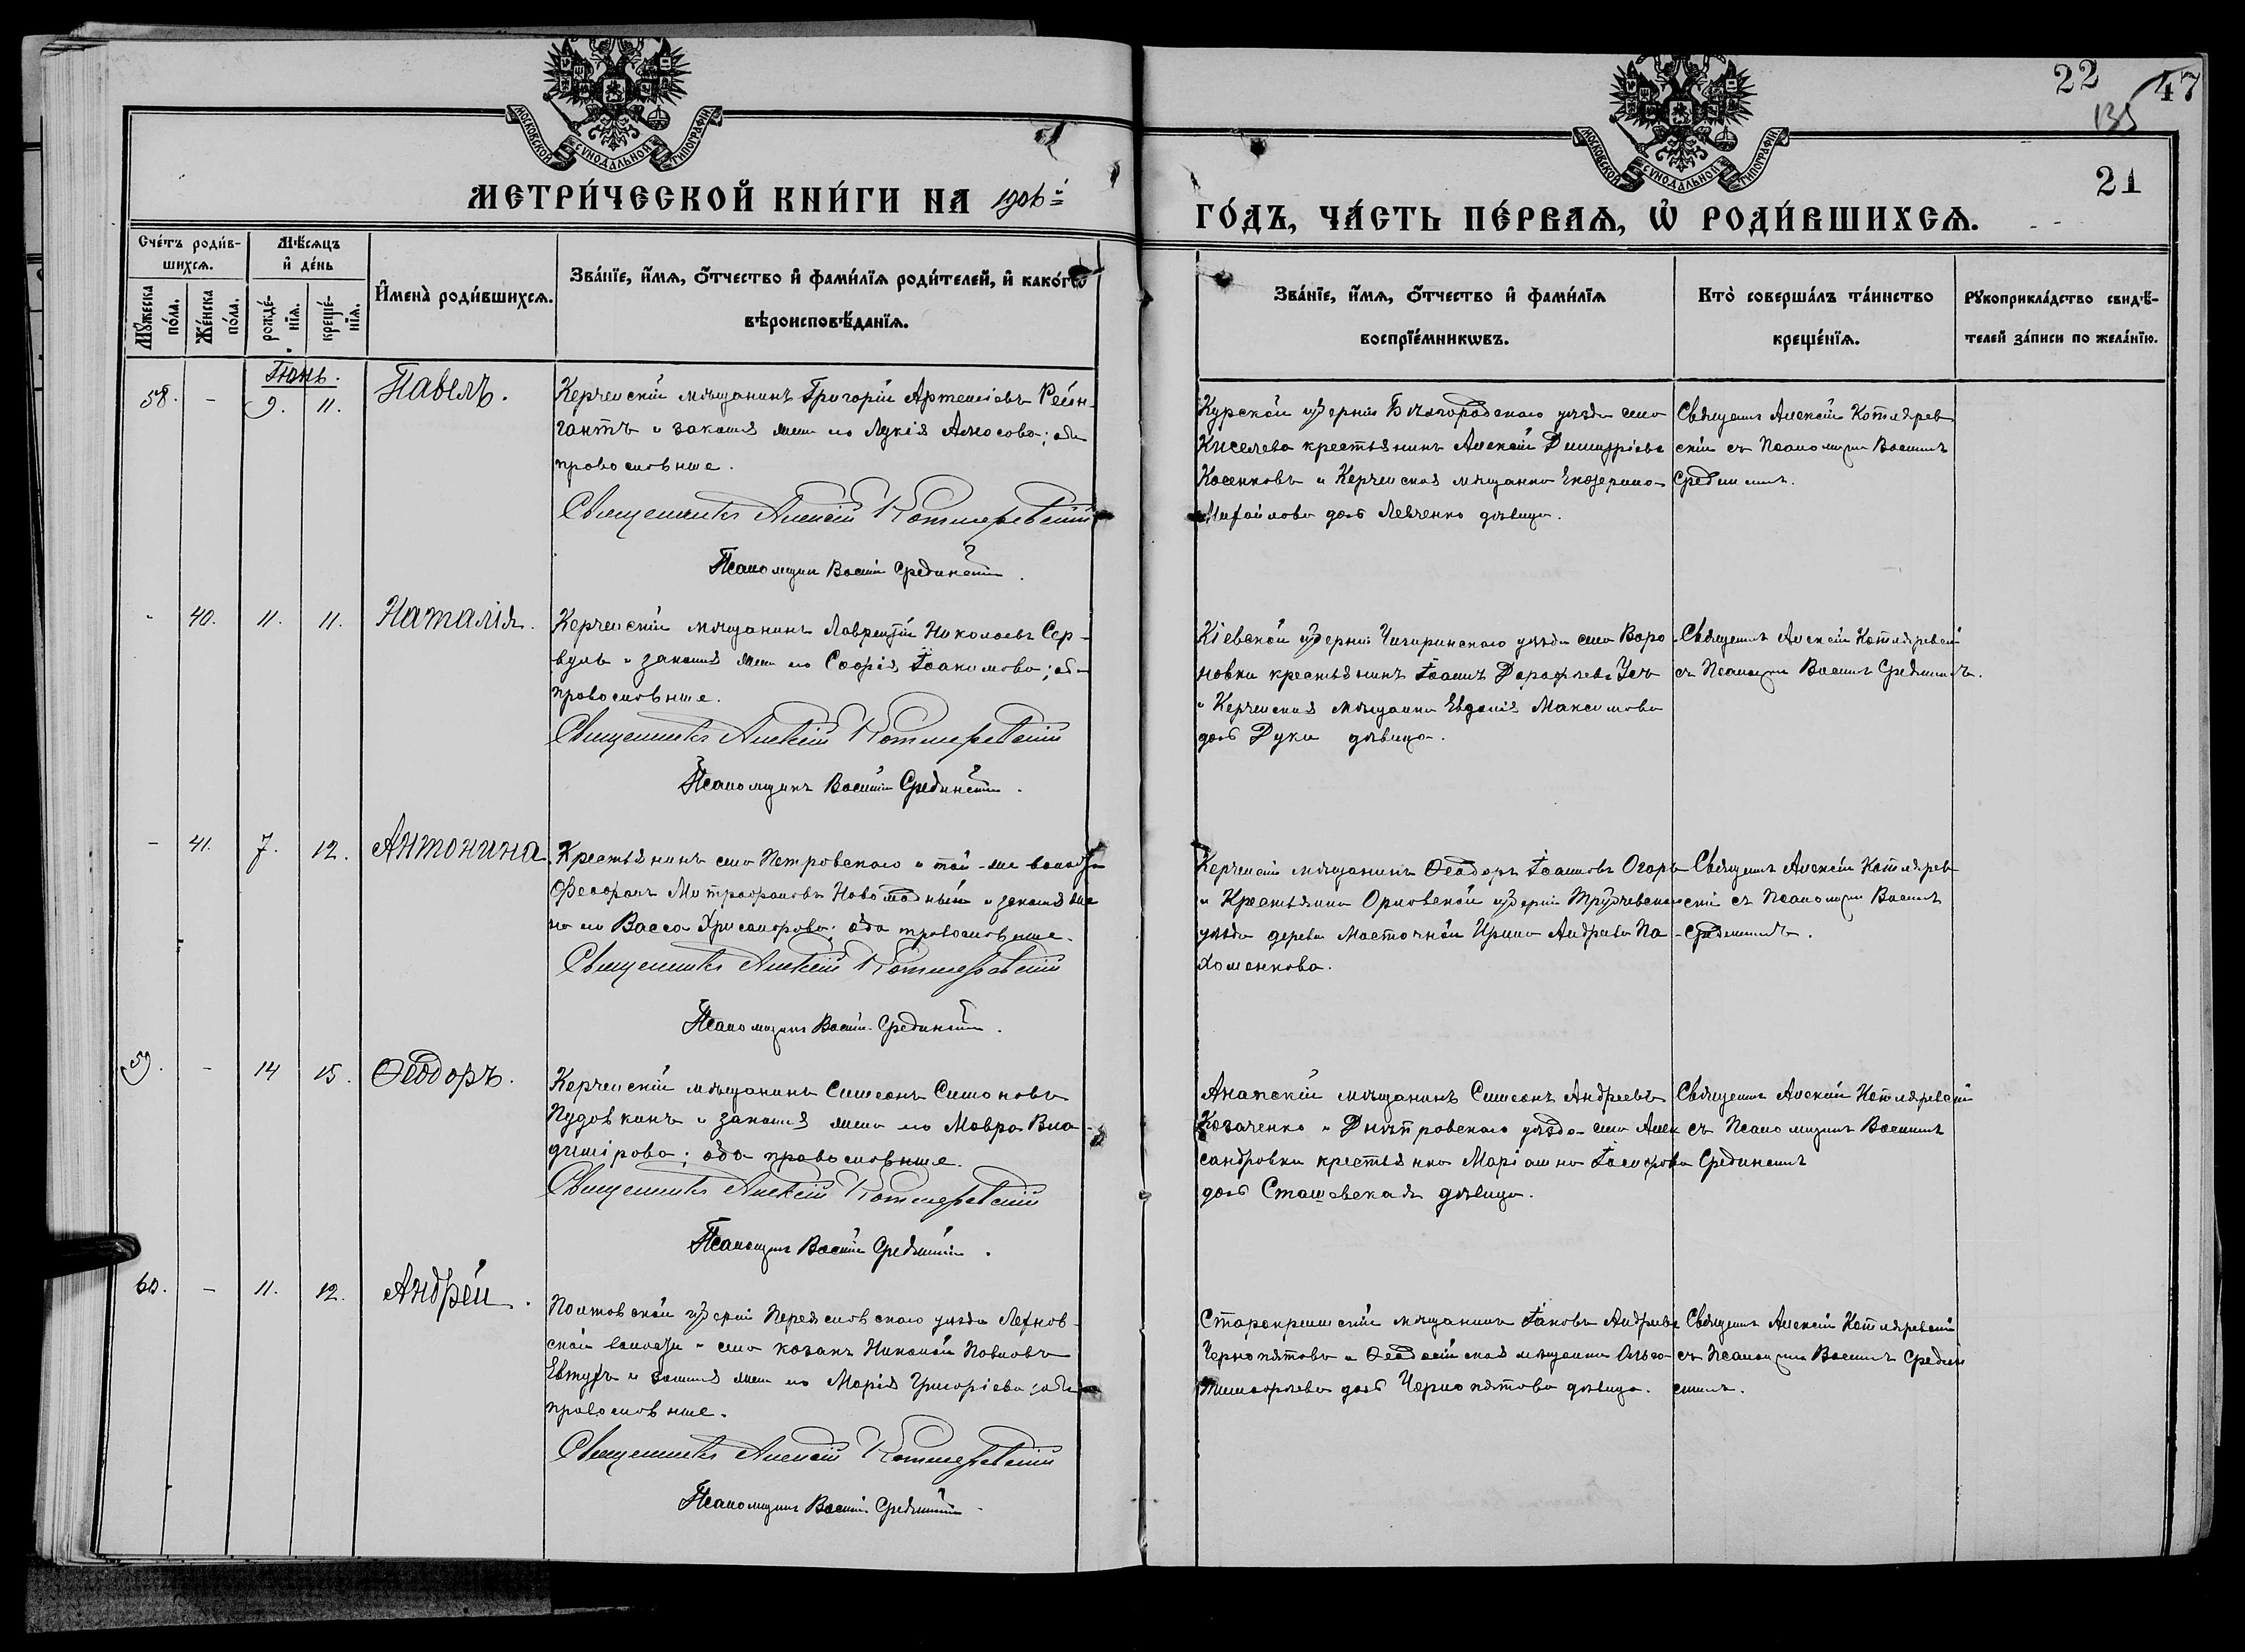 22 47
135
21
МОСКОВСКОЙ СУНОДАЛЬНОЙ ТИПОГРАФІИ.
МОСКОВСКОЙ СУНОДАЛЬНОЙ ТИПОГРАФІИ.
МЕТРИ́ЧЕСКОЙ КНИ́ГИ НА 1906-й
ГО́ДЪ, ЧА́СТЬ ПЕ́РВАѦ, Ѡ҆ РОДИ́ВШИХСѦ.
Сче́тъ роди́в-
шихсѧ.
Мѣ́сѧцъ
и҆ де́нь
Мꙋ́жеска по́ла.
Же́нска по́ла.
рожде́-нїѧ.
креще́-нїѧ.
И҆мена̀ роди́вшихсѧ.
Зва́нїе, и҆́мѧ, ѻ҆́тчество и҆ фами́лїѧ роди́телей, и҆ како́гѡ
вѣроисповѣ́данїѧ.
Зва́нїе, и҆́мѧ, ѻ҆́тчество и҆ фами́лїѧ
воспрїе́мникѡвъ.
Кто̀ соверша́лъ та́инство
креще́нїѧ.
Рꙋкоприкла́дство свидѣ́-
телей за́писи по жела́нїю.
Іюнь.
58. - 9. 11. Павелъ.
Керченскій мѣщанинъ Григорій Артеміевъ Рейн-
гантъ и законная жена его Лукія Амосова; оба
православные.
Священникъ Алексій Котляревскій
Псаломщикъ Василій Срединскій.
Курской губерніи Бѣлгородскаго уѣзда села
Киселева крестьянинъ Алексій Димитріевъ
Косенковъ и Керченская мѣщанка Екатерина
Михайлова дочь Левченко дѣвица.
Священникъ Алексій Котлярев
скій съ Псаломщикомъ Василіемъ
Срединскимъ.
- 40. 11. 11. Наталія.
Керченскій мѣщанинъ Лаврентій Николаевъ Сер-
вуль и законная жена его Софія Іоакимова; оба
православные.
Священникъ Алексій Котляревскій
Псаломщикъ Василій Срединскій.
Кіевской губерніи Чигиринскаго уѣзда села Воро
новки крестьянинъ Іоаннъ Дорофеевъ Усъ
и Керченская мѣщанка Евдокія Максимова
дочь Дуки дѣвица.
Священникъ Алексій Котляревскій
съ Псаломщикомъ Василіемъ Срединскимъ.
- 41. 7. 12. Антонина.
Крестьянинъ села Петровскаго и той-же волости
Феофанъ Митрофановъ и законная же
на его Васса Хрисанфова; оба православные.
Священникъ Алексій Котляревскій
Псаломщикъ Василій Срединскій.
Керченскій мѣщанинъ Ѳеодоръ Іоанновъ Огорь
и Крестьянка Орловской губерніи Трубчевскаго
уѣзда деревни Масточной Ирина Андреева Па-
хоменкова.
Священникъ Алексій Котлярев
скій съ Псаломщикомъ Василіемъ
Срединскимъ.
59. - 14 15. Ѳеодоръ.
Керченскій мѣщанинъ Симеонъ Симоновъ
Пудовкинъ и законная жена его Мавра Вла-
димірова; оба православные.
Священникъ Алексій Котляревскій
Псаломщикъ Василій Срединскій.
Анапскій мѣщанинъ Симеонъ Андреевъ
Козаченко и Днѣпровскаго уѣзда села Алек
сандровки крестьянка Маріанна Іосифова
дочь Сташевская дѣвица.
Священникъ Алексій Котляревскій
съ Псаломщикомъ Василіемъ
Срединскимъ
60. - 11. 12. Андрей.
Полтавской губерніи Переяславскаго уѣзда Лехнов-
ской волости и села козакъ Николай Павловъ
Евтухъ и законная жена его Марія Григоріева; оба
православные.
Священникъ Алексій Котляревскій
Псаломщикъ Василій Срединскій
Старокрымскій мѣщанинъ Іаковъ Андреевъ
Чернопятовъ и Ѳеодосійская мѣщанка Ольга
Тимофеева дочь Чернопятова дѣвица.
Священникъ Алексій Котляревскій
съ Псаломщикомъ Василіемъ Средин
скимъ.